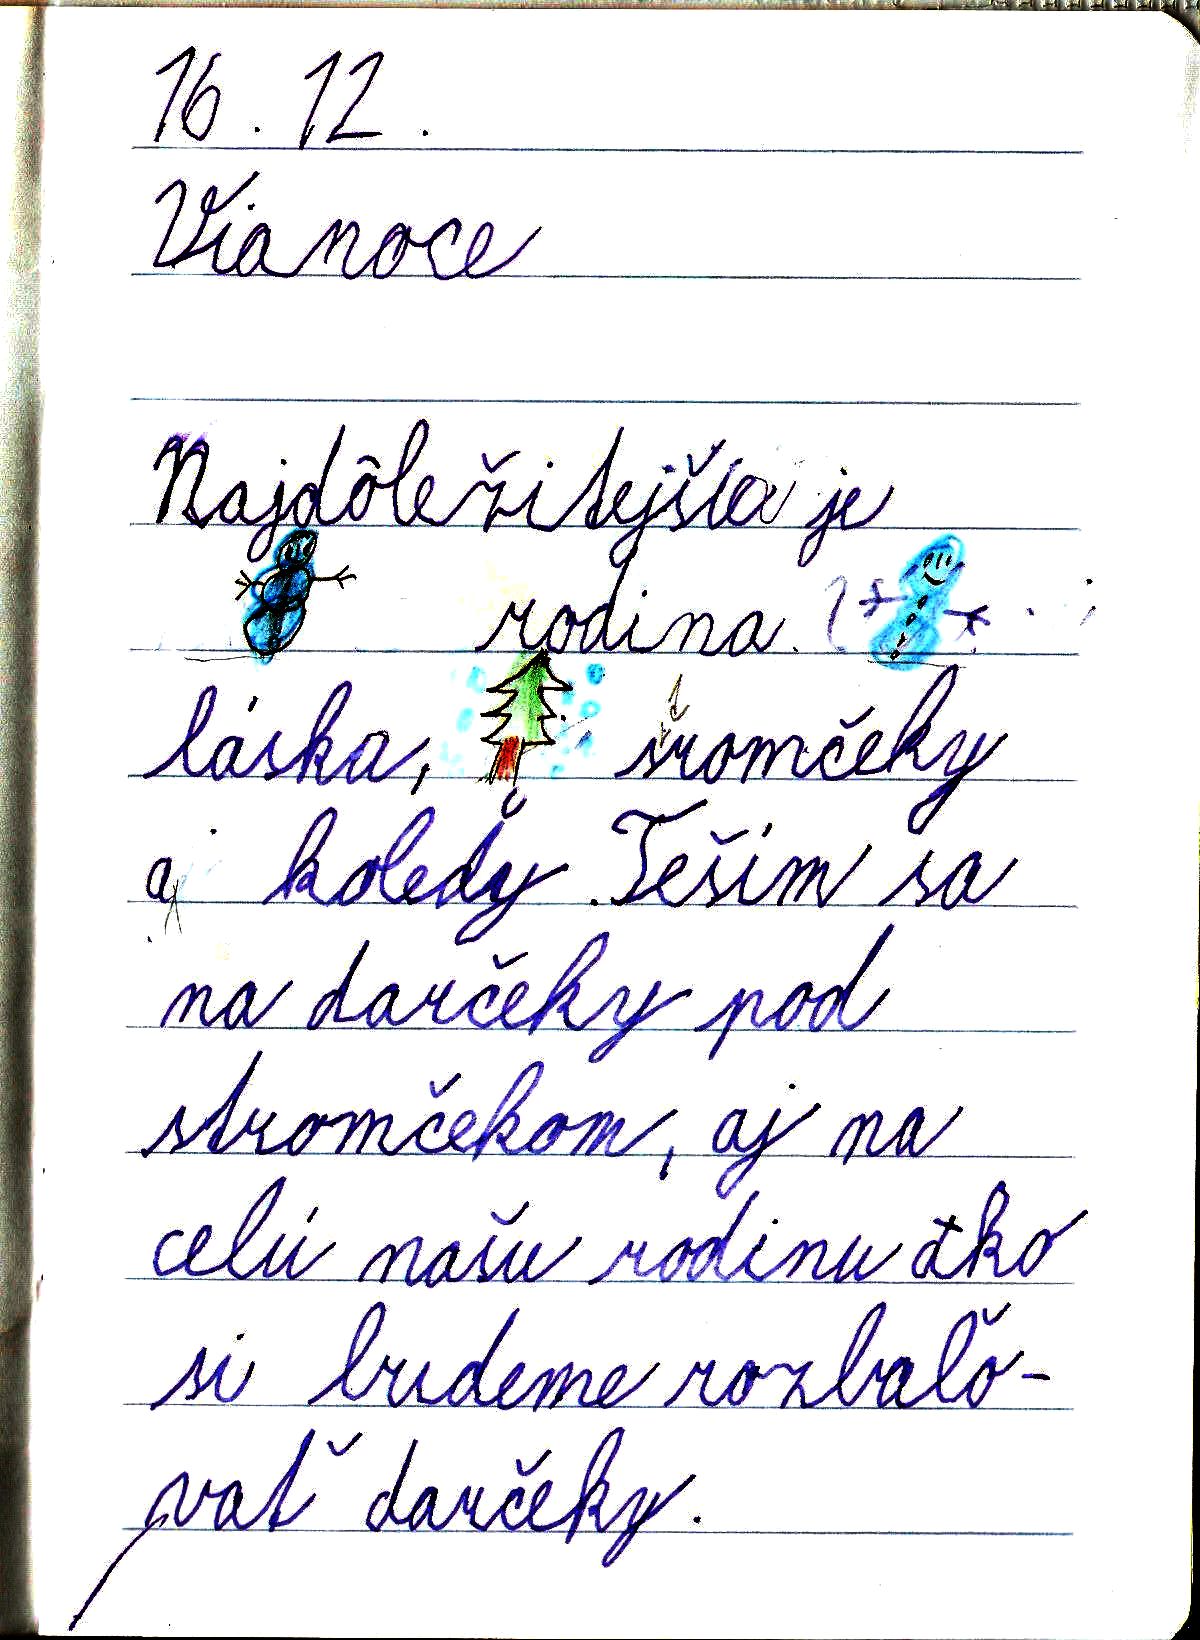 16. 12.
Vianoce
Najdôležitejšia je
rodina.
láska, stromčeky
a koledy. Teším sa
na darčeky pod
stromčekom, aj na
celú našu rodinu ako
si budeme rozbaľo-
vať darčeky.